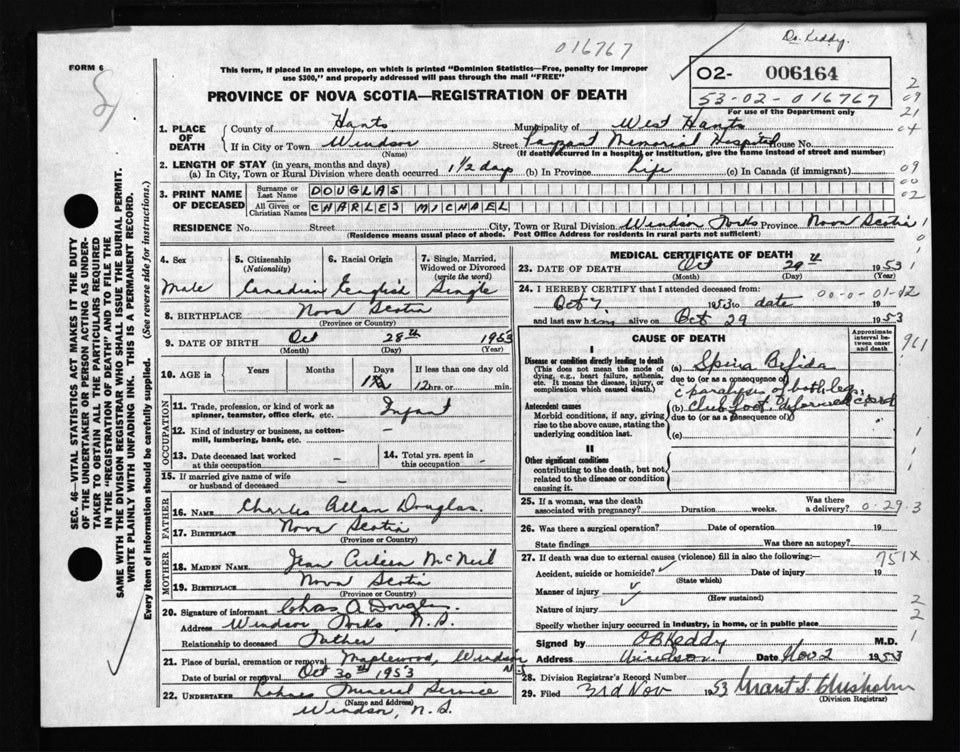 Dr. Keddy.
016767
FORM 6
This form, if placed in an envelope, on which is printed "Dominion Statistics—Free, penalty for improper
use $300," and properly addressed will pass through the mail "FREE"
02- 006164
53-02-016767
For use of the Department only
PROVINCE OF NOVA SCOTIA—REGISTRATION OF DEATH
1. PLACE OF DEATH
County of Hants Municipality of West Hants
If in City or Town Windsor Street Payzant Memorial Hospital House No.
(Name) (If death occurred in a hospital or institution, give the name instead of street and number)
2. LENGTH OF STAY (in years, months and days)
(a) In City, Town or Rural Division where death occurred 1 1/2 days (b) In Province Life (c) In Canada (if immigrant)
3. PRINT NAME OF DECEASED
Surname or Last Name DOUGLAS
All Given or Christian Names CHARLES MICHAEL
RESIDENCE No. Street City, Town or Rural Division Windsor Forks Province Nova Scotia
(Residence means usual place of abode. Post Office Address for residents in rural parts not sufficient)
4. Sex
Male
5. Citizenship
(Nationality)
Canadian
6. Racial Origin
English
7. Single, Married,
Widowed or Divorced
(write the word)
Single
8. BIRTHPLACE Nova Scotia
(Province or Country)
9. DATE OF BIRTH Oct 28th 1953
(Month) (Day) (Year)
10. AGE in Years Months Days If less than one day old
12 hrs. or min.
OCCUPATION
11. Trade, profession, or kind of work as Infant
spinner, teamster, office clerk, etc.
12. Kind of industry or business, as cotton- –
mill, lumbering, bank, etc.
13. Date deceased last worked
at this occupation –
14. Total yrs. spent in
this occupation –
15. If married give name of wife
or husband of deceased –
FATHER
16. NAME Charles Allan Douglas.
17. BIRTHPLACE Nova Scotia
(Province or Country)
MOTHER
18. MAIDEN NAME Jean McNeil
19. BIRTHPLACE Nova Scotia
(Province or Country)
20. Signature of informant Chas. A. Douglas.
Address Windsor Forks, N.S.
Relationship to deceased Father
21. Place of burial, cremation or removal Maplewood, Windsor N.S.
Date of burial or removal Oct 30th 1953
22. UNDERTAKER Service
(Name and Address)
Windsor, N.S.
MEDICAL CERTIFICATE OF DEATH
23. DATE OF DEATH Oct 29th 1953
(Month) (Day) (Year)
24. I HEREBY CERTIFY that I attended deceased from:
Oct 1953 to date
and last saw him alive on Oct 29 1953
CAUSE OF DEATH
Approximate
interval between
onset
and death
I
Disease or condition directly leading to death
(This does not mean the mode of
dying, e.g., heart failure, asthenia,
etc. It means the disease, injury, or
complication which caused death.)
(a) Spina Bifida
due to (or as a consequence of)
c paralysis of both legs.
Antecedent causes
Morbid conditions, if any, giving
rise to the above cause, stating the
underlying condition last.
(b) Club foot
due to (or as a consequence of)
(c)
II
Other significant conditions
contributing to the death, but not
related to the disease or condition
causing it.
25. If a woman, was the death
associated with pregnancy? Duration weeks. Was there
a delivery? 0-29-3
26. Was there a surgical operation? Date of operation 19
State findings Was there an autopsy?
27. If death was due to external causes (violence) fill in also the following:
751X
Accident, suicide or homicide? Date of injury 19
(State which)
Manner of injury
(How sustained)
Nature of injury
Specify whether injury occurred in industry, in home, or in public place
Signed by O B Keddy M.D.
Address Windsor Date Nov 2 1953
28. Division Registrar's Record Number
29. Filed 3rd Nov 1953 Grant S. Chisholm
(Division Registrar)
SEC. 46—VITAL STATISTICS ACT MAKES IT THE DUTY
OF THE UNDERTAKER OR PERSON ACTING AS UNDER-
TAKER TO OBTAIN ALL THE PARTICULARS REQUIRED
IN THE "REGISTRATION OF DEATH" AND TO FILE THE
SAME WITH THE DIVISION REGISTRAR WHO SHALL ISSUE THE BURIAL PERMIT.
WRITE PLAINLY WITH UNFADING INK. THIS IS A PERMANENT RECORD.
Every item of information should be carefully supplied. (See reverse side for instructions.)